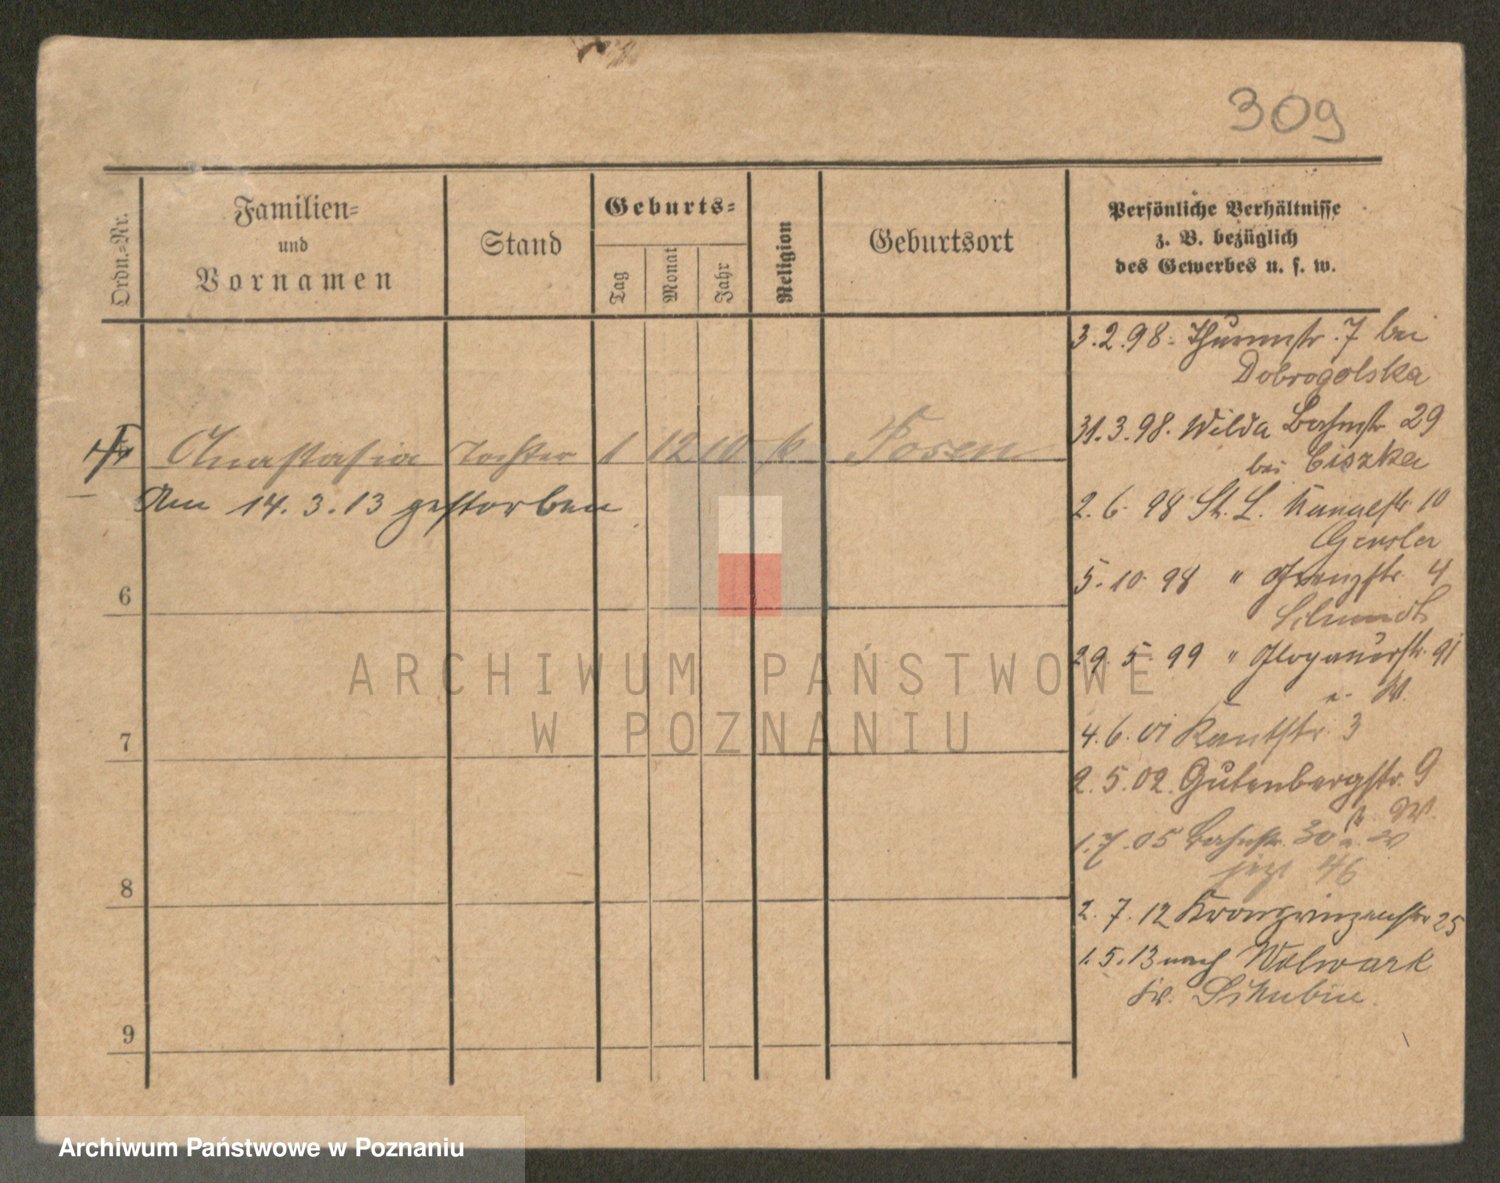 309
Ordn.-Nr.
Familien-
und
Vornamen
Stand
Geburts-
Tag
Monat
Jahr
Religion
Geburtsort
Persönliche Verhältnisse
z. B. bezüglich
des Gewerbes u. s. w.
3.2.98. Thurmstr. 7 bei
Dobrogolska
31.3.98. Wilda Bahnstr 29
bei Ciszka
2.6.98 St. L. Kanalstr 10
Gensler
5.10.98 " Grenzstr. 4
Schmidt
29.5.99 " Glogauerstr. 91
a. W.
4.6.01 Kantstr. 3
2.5.02. Gutenbergstr. 9
a. W.
1.7.05 Bahnstr. 30 a. W
jezt 46
2.7.12 Kronprinzenstr 25
1.5.13 nach Wolwark
Kr. Schubin.
Anastasia Tochter 1 12 10 k Posen
Am 14.3.13 gestorben
6
7
8
9
ARCHIWUM PAŃSTWOWE
W POZNANIU
Archiwum Państwowe w Poznaniu